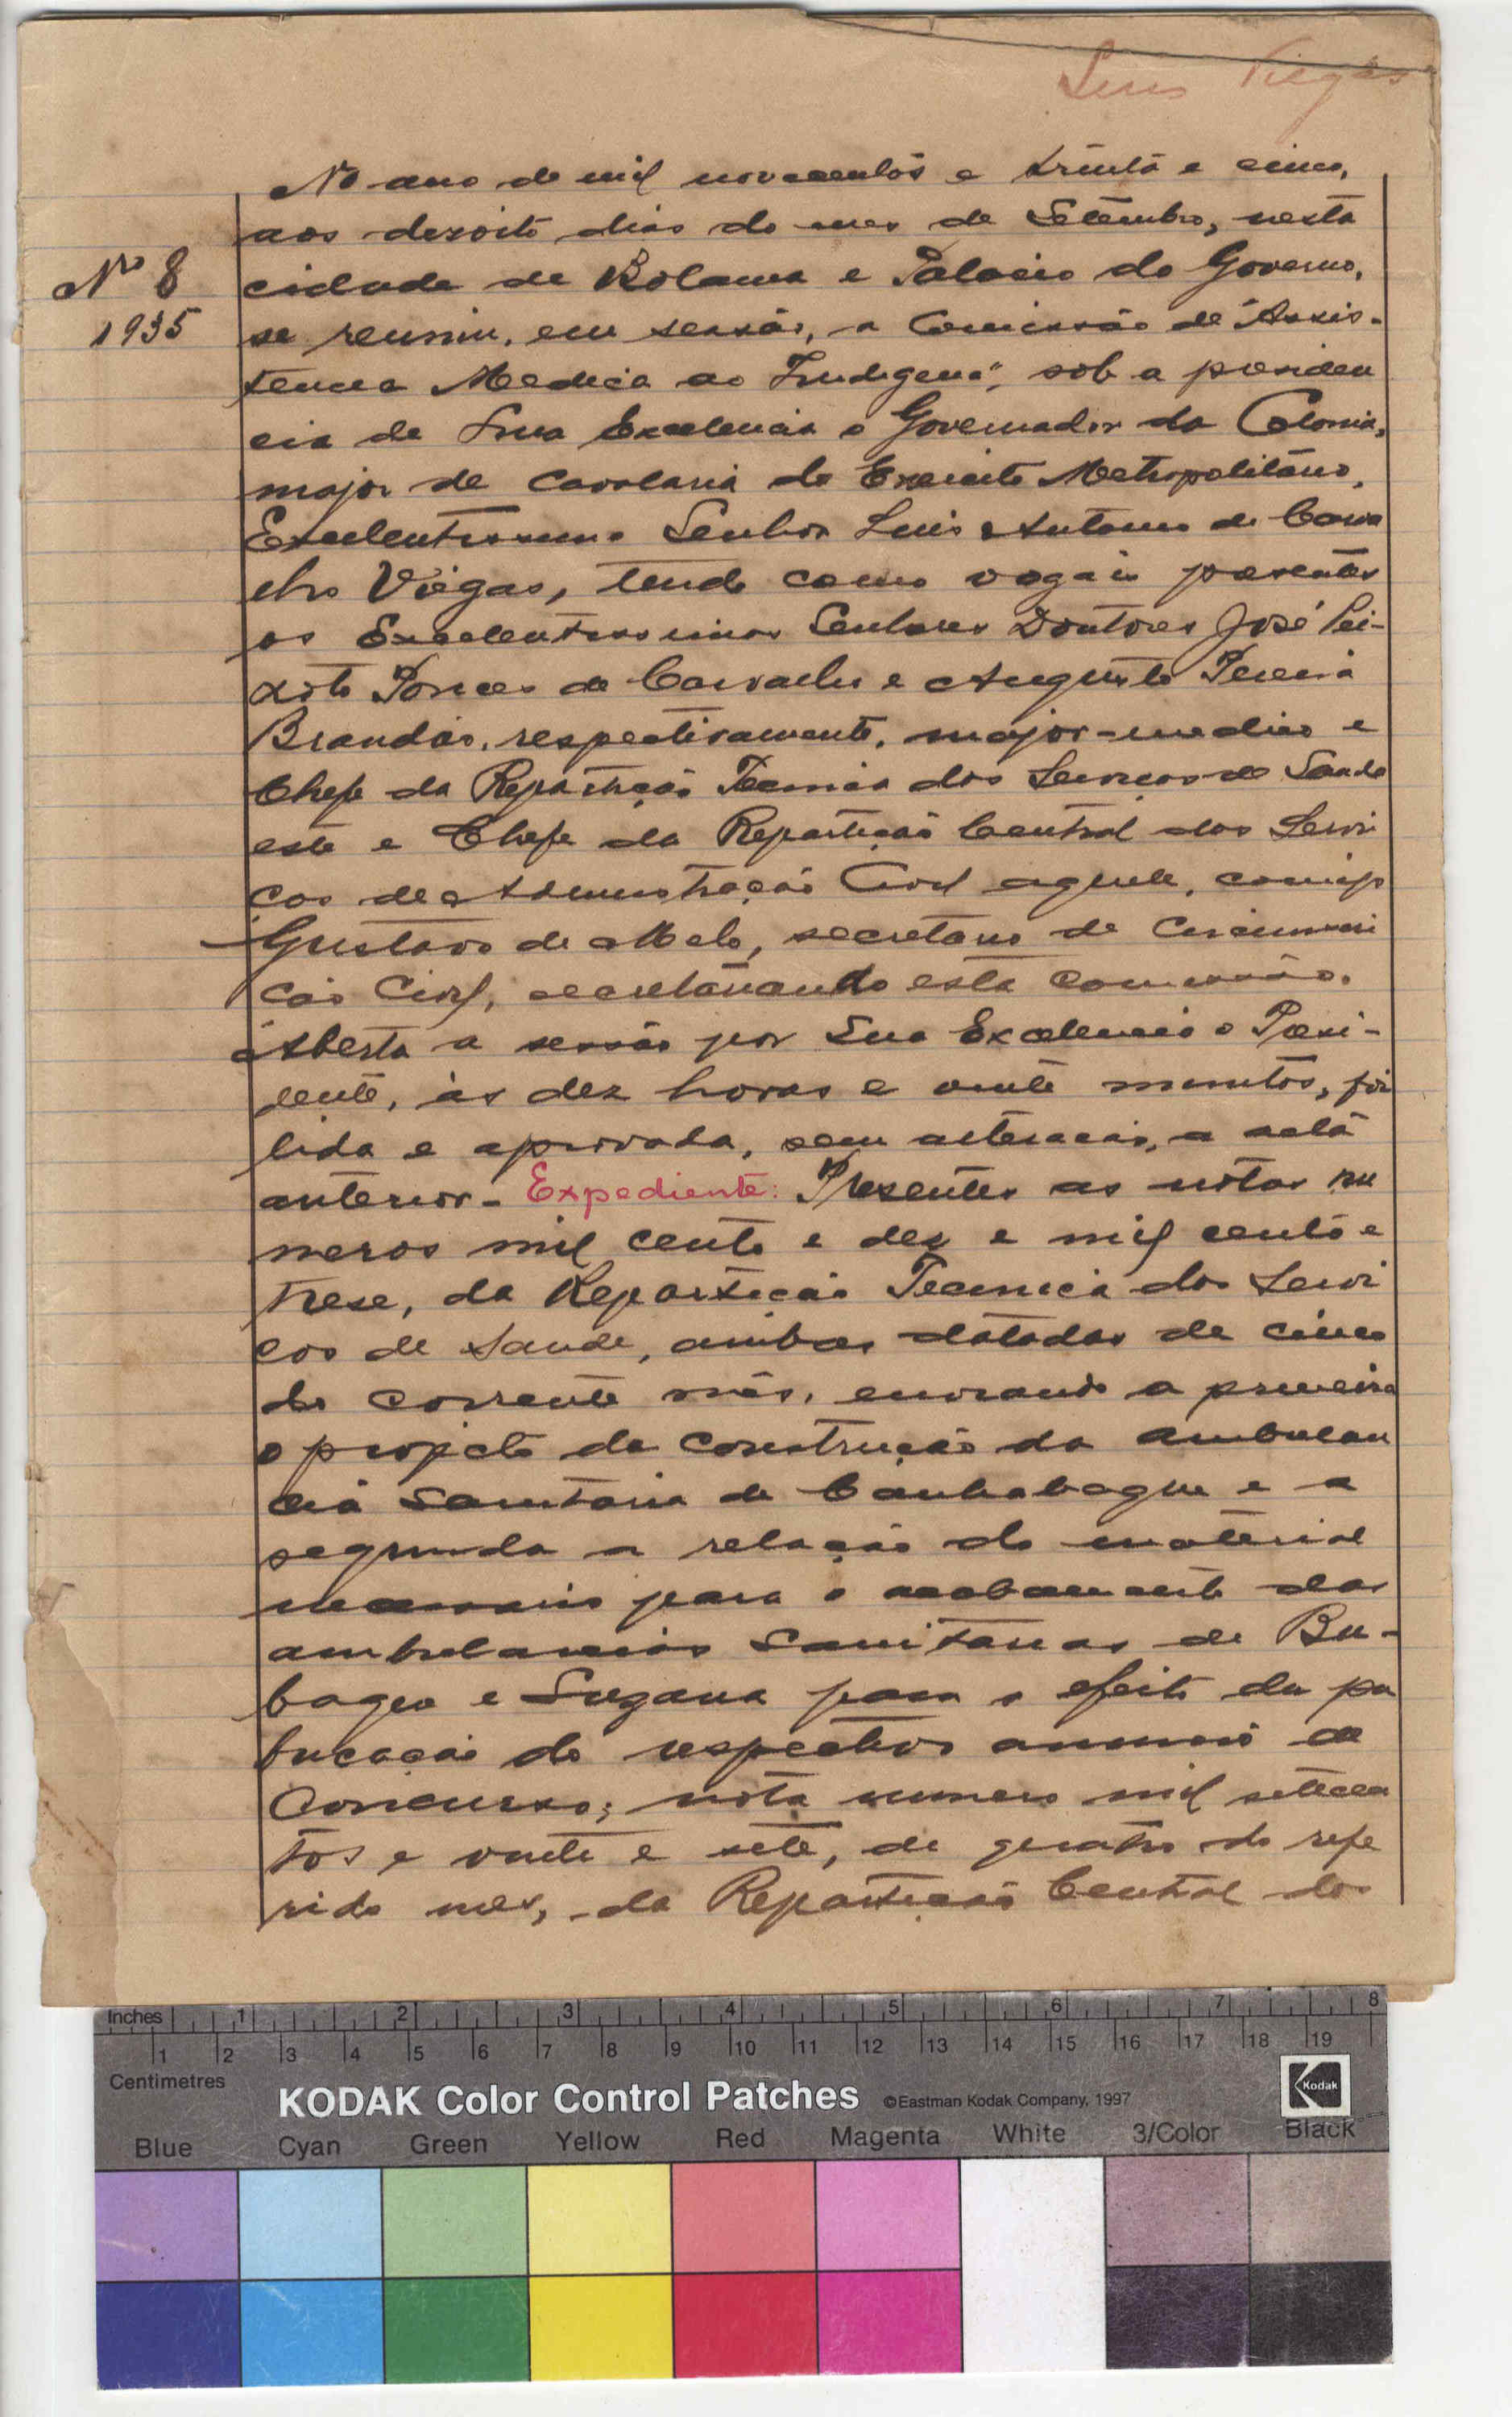 Luis Viegas
No ano de mil novecentos e trinta e cinco,
aos dezoito dias do mes de Setembro, nesta
Nº 8
cidade de Bolama e Palacio do Governo,
1935
se reuniu, em sessão, a Comissão de "Assis-
tencia Medica ao Indigena", sob a presiden
cia de Sua Excelencia o Governador da Colonia,
major de cavalaria do Exercito Metropolitano,
Excelentissimo Senhor Luis Antonio de Carva
lho Viegas, tendo como vogais presentes
os Excelentissimos Senhores Doutores José Pei-
xoto Ponces de Carvalho e Augusto Pereira
Brandão, respectivamente, major-medico e
Chefe da Repartição Tecnica dos Serviços de Saude
este e Chefe da Repartição Central dos Servi
ços de Administração Civil aquele, comigo
Gustavo de Melo, secretario de Circunscri
ção Civil, secretariando esta comissão.
Aberta a sessão por Sua Excelencia o Presi-
dente, ás dez horas e vinte minutos, foi
lida e aprovada, sem alteração, a acta
anterior - Expediente: Presentes as notas nu
meros mil cento e dez e mil cento e
treze, da Repartição Tecnica dos Servi
ços de Saude, ambas datadas de cinco
do corrente mês, enviando a primeira
o projecto da construção da ambulan
cia Sanitaria de Canhabaque e a
segunda a relação do material
necessario para o acabamento das
ambulancias Sanitarias de Bu-
baque e Suzana para o efeito da pu
blicação do respectivo anuncio de
Concurso; nota numero mil setecen
tos e vinte e sete, de quatro do refe
rido mes, da Repartição Central dos
Inches 1 2 3 4 5 6 7 8
1 2 3 4 5 6 7 8 9 10 11 12 13 14 15 16 17 18 19
Centimetres
KODAK Color Control Patches ©Eastman Kodak Company, 1997 Kodak
Blue Cyan Green Yellow Red Magenta White 3/Color Black